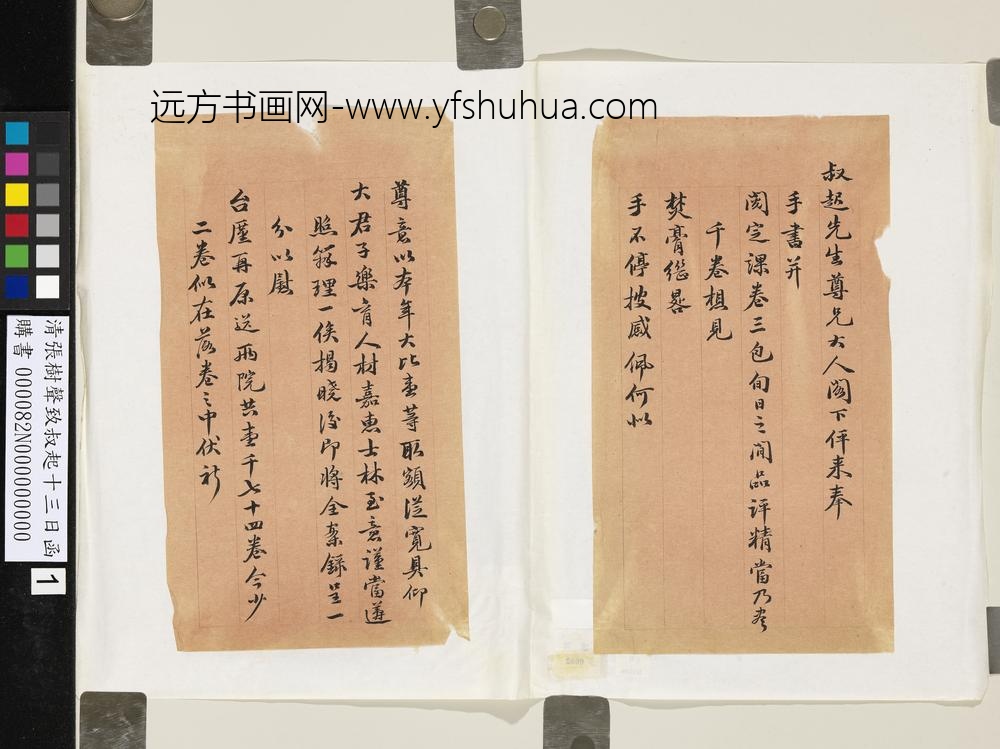 远方书画网-www.yfshuhua.com
叔起先生尊兄大人阁下伻来奉
手書并
閲定課卷三包旬日之間品評精當乃尽
千卷想見
焚膏繼晷
手不停披感佩何似
尊意以本年大比壹等取額從寬具仰
大君子樂育人材嘉惠士林至意謹當遵
照辦理一俟揭曉後即將全案錄呈一
分以慰
台厪再原送兩院共壹千七十四卷今少
二卷似在落卷之中伏祈
清張樹聲致叔起十三日函
購書 000082N000000000
1